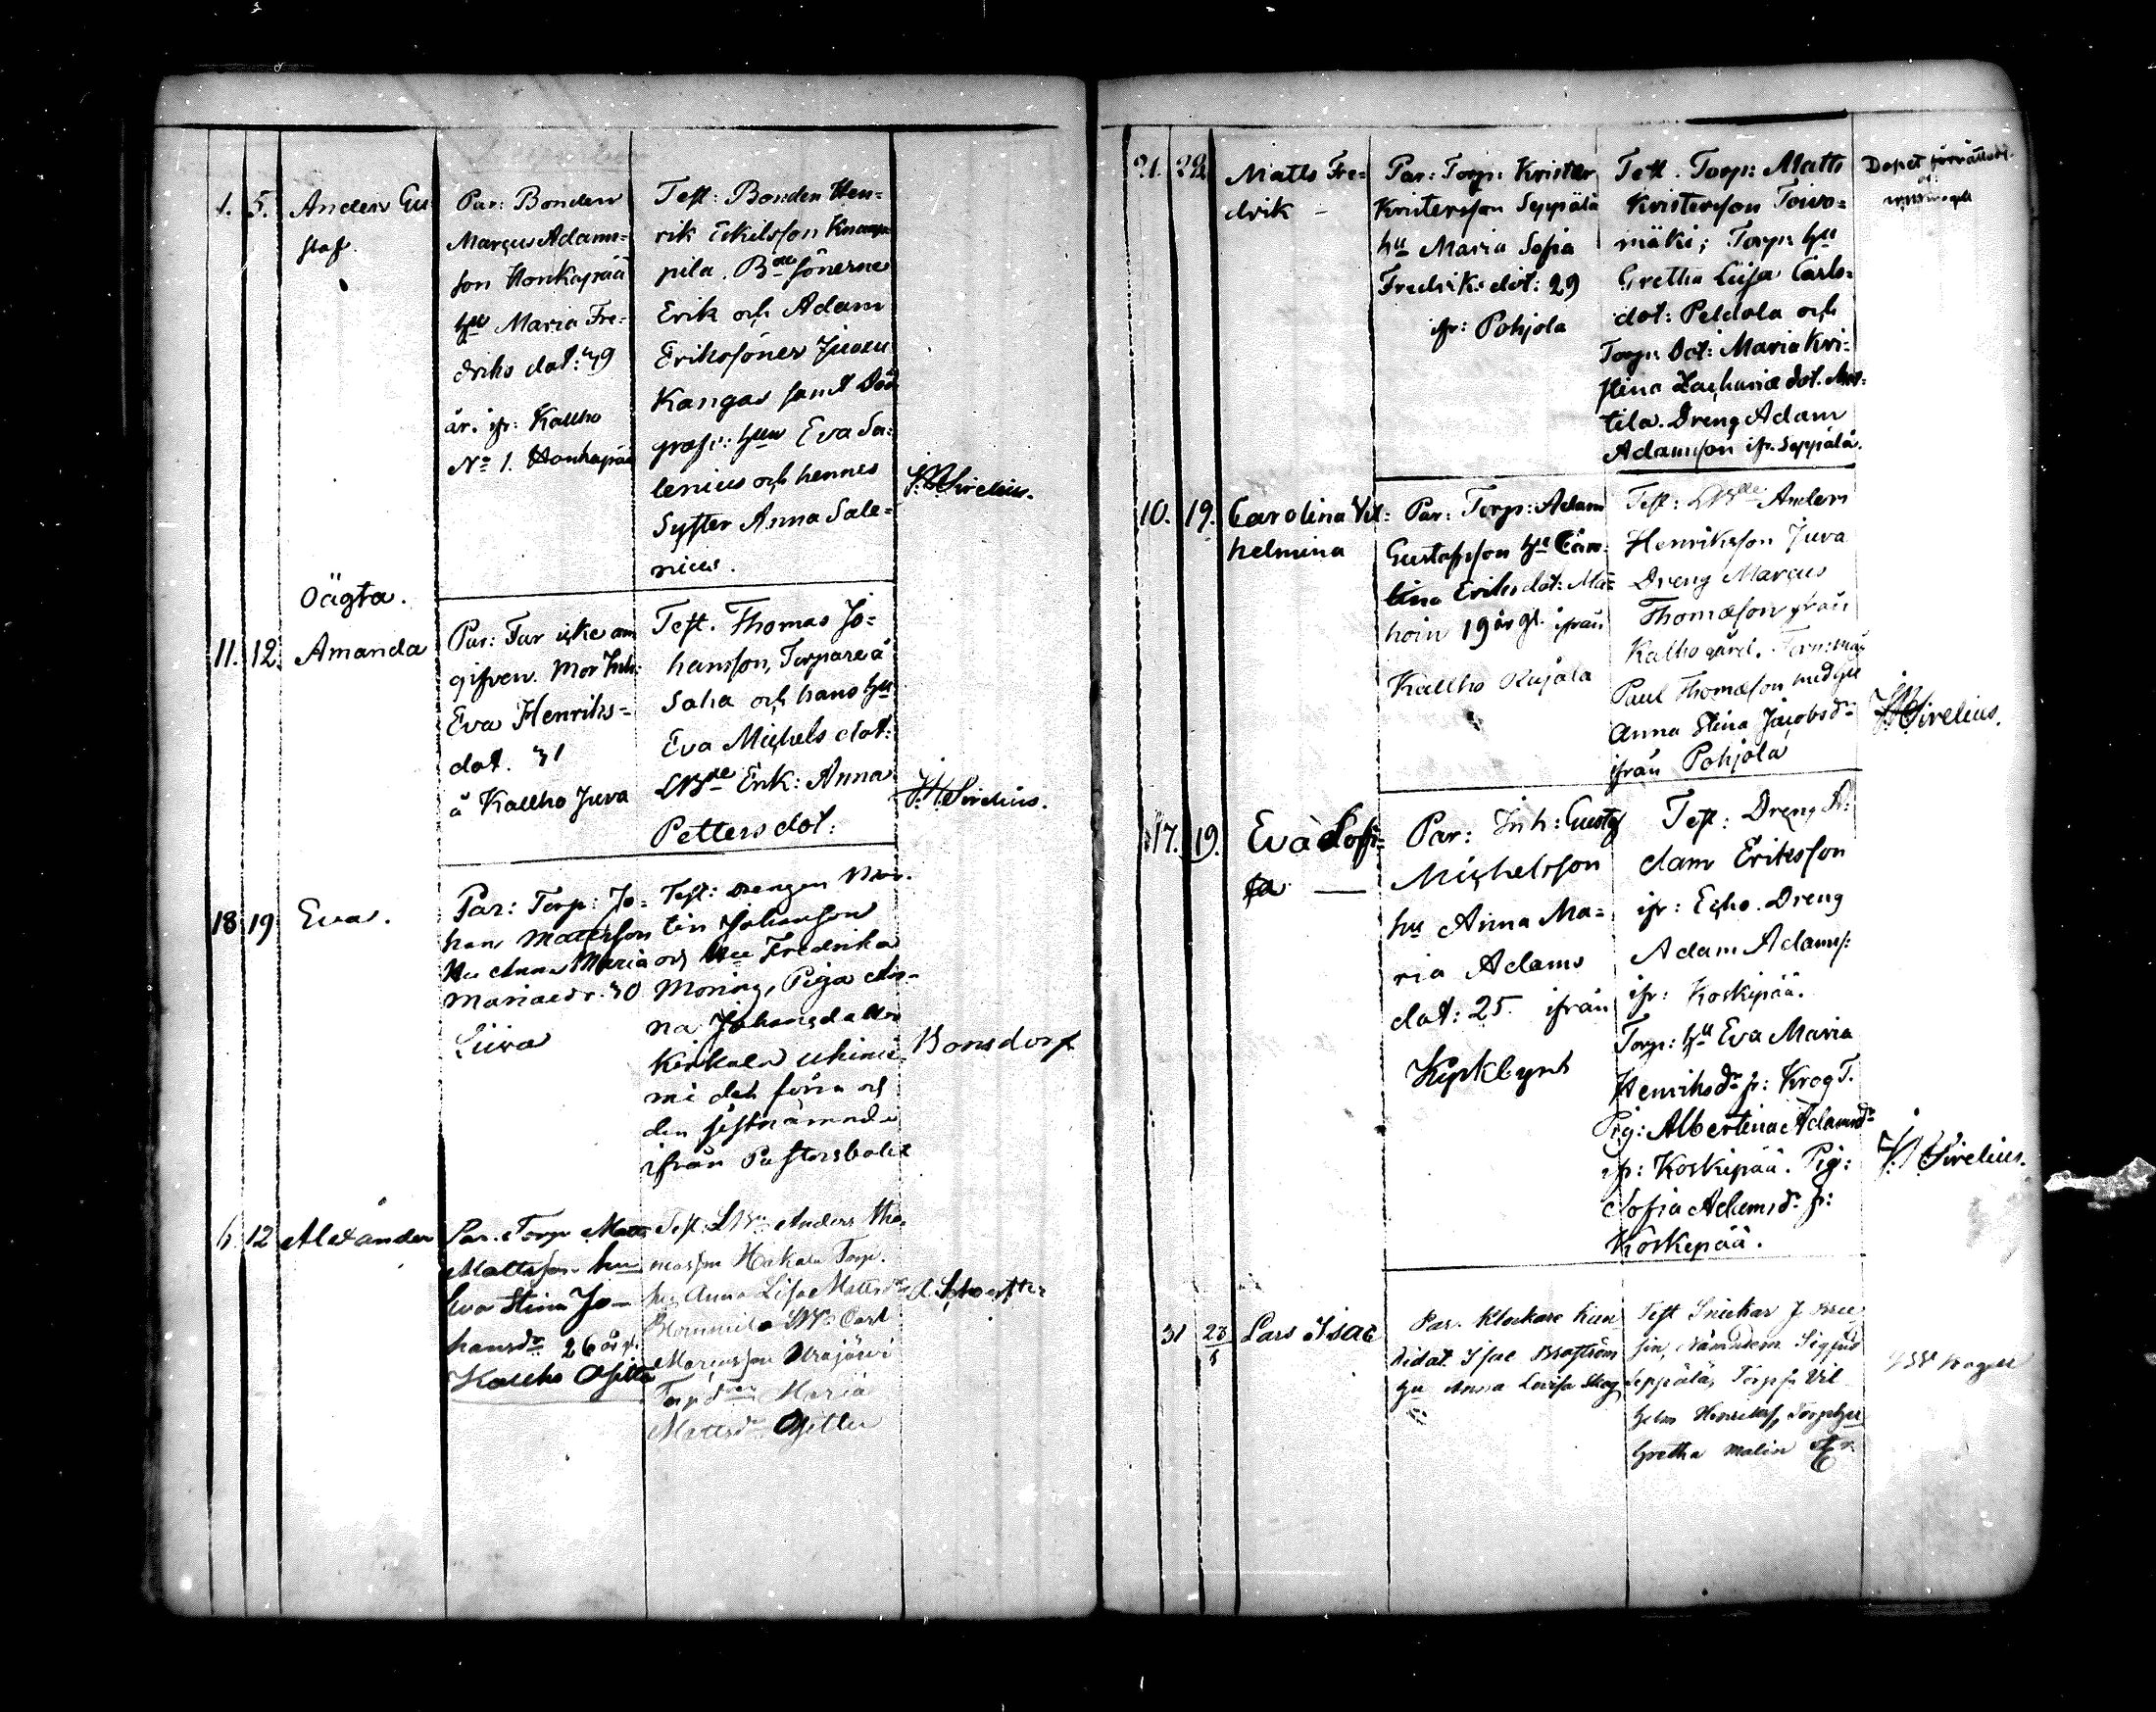 1. 5. Anders Gu
staf.
Par: Bonden
Marcus Adams-
son Honkapää
hu Maria Fre-
driks dot:
år. ifr: Kallho
No 1. Honkapää
Test: Bonden Hen-
rik Eskilsson
pila. Bde sönerne
Erik och Adam
Erikssöner
Kangas samt
hun Eva Sa-
lenius och hennes
Syster Anna Sale-
nius.
Sirelius.
Oägta.
11. 12. Amanda
Par: Far icke an
gifven. Mor Inh:
Eva Henriks-
dot. 31
å Kallho Juva
Test. Thomas Jo-
hansson, Torpare å
Saha och hans hu
Eva Michels dot:
Erik: Anna
Petters dot:
Sirelius.
18 19 Eva.
Par: Torp: Jo-
han Mattsson
Hu Anna Maria
30
Test: Drengen
tin Johansson
och Hu Fredrika
Moring, Piga An-
na Johansdotter
Kirkala
det förra och
den sistnämnde
ifrån Pastorsbolet
Bonsdorf
6 12 Alexander
Par. Torp Matts
Mattsson hu
Eva Stina Jo-
hansdr 26 år gl.
Kallho
Test: Anders Tho-
masson Hakala Torp.
hu Anna Lisa Mattsdr
Carl
Marcusson
Maria
Mattsdr
21. 22 Matts Fre-
drik -
Par: Torp: Krister
Kristersson Seppälä
hu Maria Sofia
Fredriks dot: 29
ifr: Pohjola
Test. Torp: Matts
Kristersson Toivo-
mäki; Torp: hu
Gretha Lisa Carls-
dot: Peldola och
Torp: Dot: Maria Kri-
stina Zachariæ dot.
tila. Dreng Adam
Adamsson ifr. Seppälä.
Dopet förrättadt
10. 19. Carolina Vil-
helmina
Par: Torp: Adam
Gustafsson hu Caro-
lina Eriks dot: Ma-
hoin 19 år gl. ifrån
Kallho
Test: Anders
Henriksson Juva
Dreng Marcus
Thomæson från
Kallho gård.
Paul Thomæson med hu
Anna Stina Jacobsdr
ifrån Pohjola
Sirelius.
17. 19. Eva Sofi-
a —
Par: Inh: Gustaf
Michelsson
hu Anna Ma-
ria Adams
dot: 25 ifrån
Kyrkbyn
Test: Dreng A-
dam Eriksson
ifr: Echo. Dreng
Adam Adams:
ifr: Koskipää.
Torp: hu Eva Maria
Henriksdr fr: Krog T.
Pig: Albertina Adamsdr
ifr: Koskipää. Pig:
Sofia Adamsdr fr:
Koskipää.
Sirelius.
31 Lars Isac
Par. Klockare Kan-
didat. Isac
hu Anna Lovisa Skog
Test Snickar J
Seppälä, Torp Vil-
helm
Gretha Malin